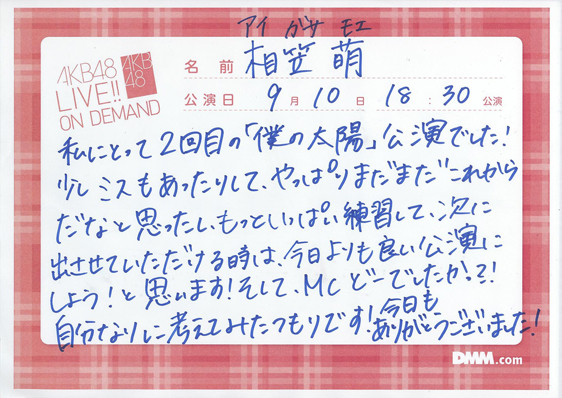 アイ ガサ モエ
AKB48
LIVE!!
ON DEMAND
AKB
48
名前 相笠 萌
公演日 9月10日 18:30公演
私にとって2回目の「僕の太陽」公演でした!
少しミスもあったりして、やっぱりまだまだこれから
だなと思ったし、もっといっぱい練習して、次に
出させていただける時は、今日よりも良い公演に
しよう!と思います!そして、MCどーでしたか?!
自分なりに考えてみたつもりです!今日も
ありがとうございました!
DMM.com